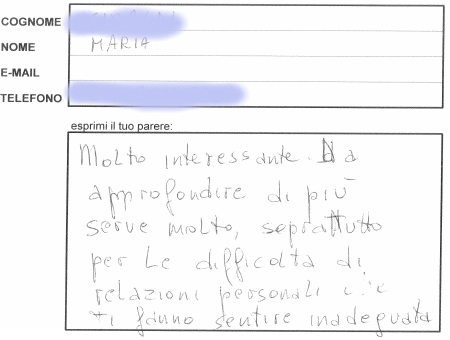 COGNOME
NOME MARIA
E-MAIL
TELEFONO
esprimi il tuo parere:
Molto interessante. Da
approfondire di più
serve molto, soprattutto
per le difficoltà di
relazioni personali
ti fanno sentire inadeguata